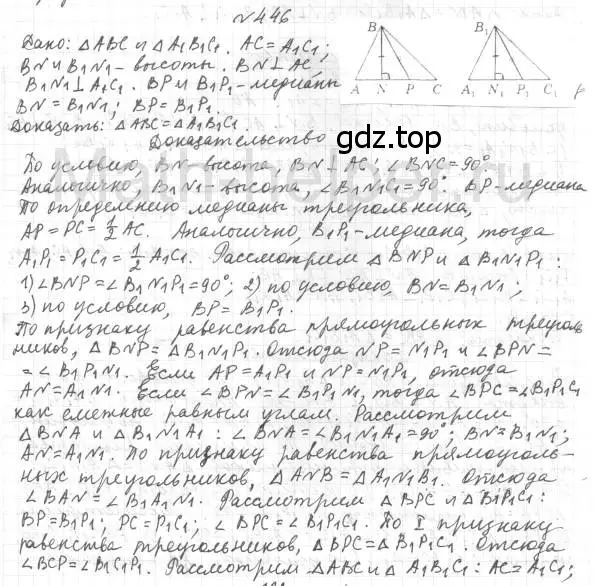 №446
Дано: △ABC и △A₁B₁C₁. AC=A₁C₁;
BN и B₁N₁-высоты. BN⊥AC,
B₁N₁⊥A₁C₁. BP и B₁P₁-медианы
BN=B₁N₁; BP=B₁P₁.
Доказать: △ABC=△A₁B₁C₁.
B B₁
A N P C A₁ N₁ P₁ C₁
Доказательство
gdz.top
По условию, BN-высота BN⊥AC; ∠BNC=90°
Аналогично, B₁N₁-высота, ∠B₁N₁C₁=90°. BP-медиана
По определению медианы треугольника,
AP=PC=1/2 AC. Аналогично, B₁P₁-медиана, тогда
A₁P₁=P₁C₁=1/2 A₁C₁. Рассмотрим △BNP и △B₁N₁P₁:
1) ∠BNP=∠B₁N₁P₁=90°; 2) по условию, BN=B₁N₁;
3) по условию, BP=B₁P₁.
По признаку равенства прямоугольных треуголь
ников, △BNP=△B₁N₁P₁. Отсюда NP=N₁P₁ и ∠BPN=
=∠B₁P₁N₁. Если AP=A₁P₁ и NP=N₁P₁, отсюда
AN=A₁N₁. Если ∠BPN=∠B₁P₁N₁, тогда ∠BPC=∠B₁P₁C₁
как смежные равным углам. Рассмотрим
△BNA и △B₁N₁A₁: ∠BNA=∠B₁N₁A₁=90°; BN=B₁N₁;
AN=A₁N₁. По признаку равенства прямоуголь-
ных треугольников, △ANB=△A₁N₁B₁. Отсюда
∠BAN=∠B₁A₁N₁. Рассмотрим △BPC и △B₁P₁C₁:
BP=B₁P₁; PC=P₁C₁; ∠BPC=∠B₁P₁C₁. По I признаку
равенства треугольников, △BPC=△B₁P₁C₁. Отсюда
∠BCP=∠B₁C₁P₁. Рассмотрим △ABC и △A₁B₁C₁: AC=A₁C₁;